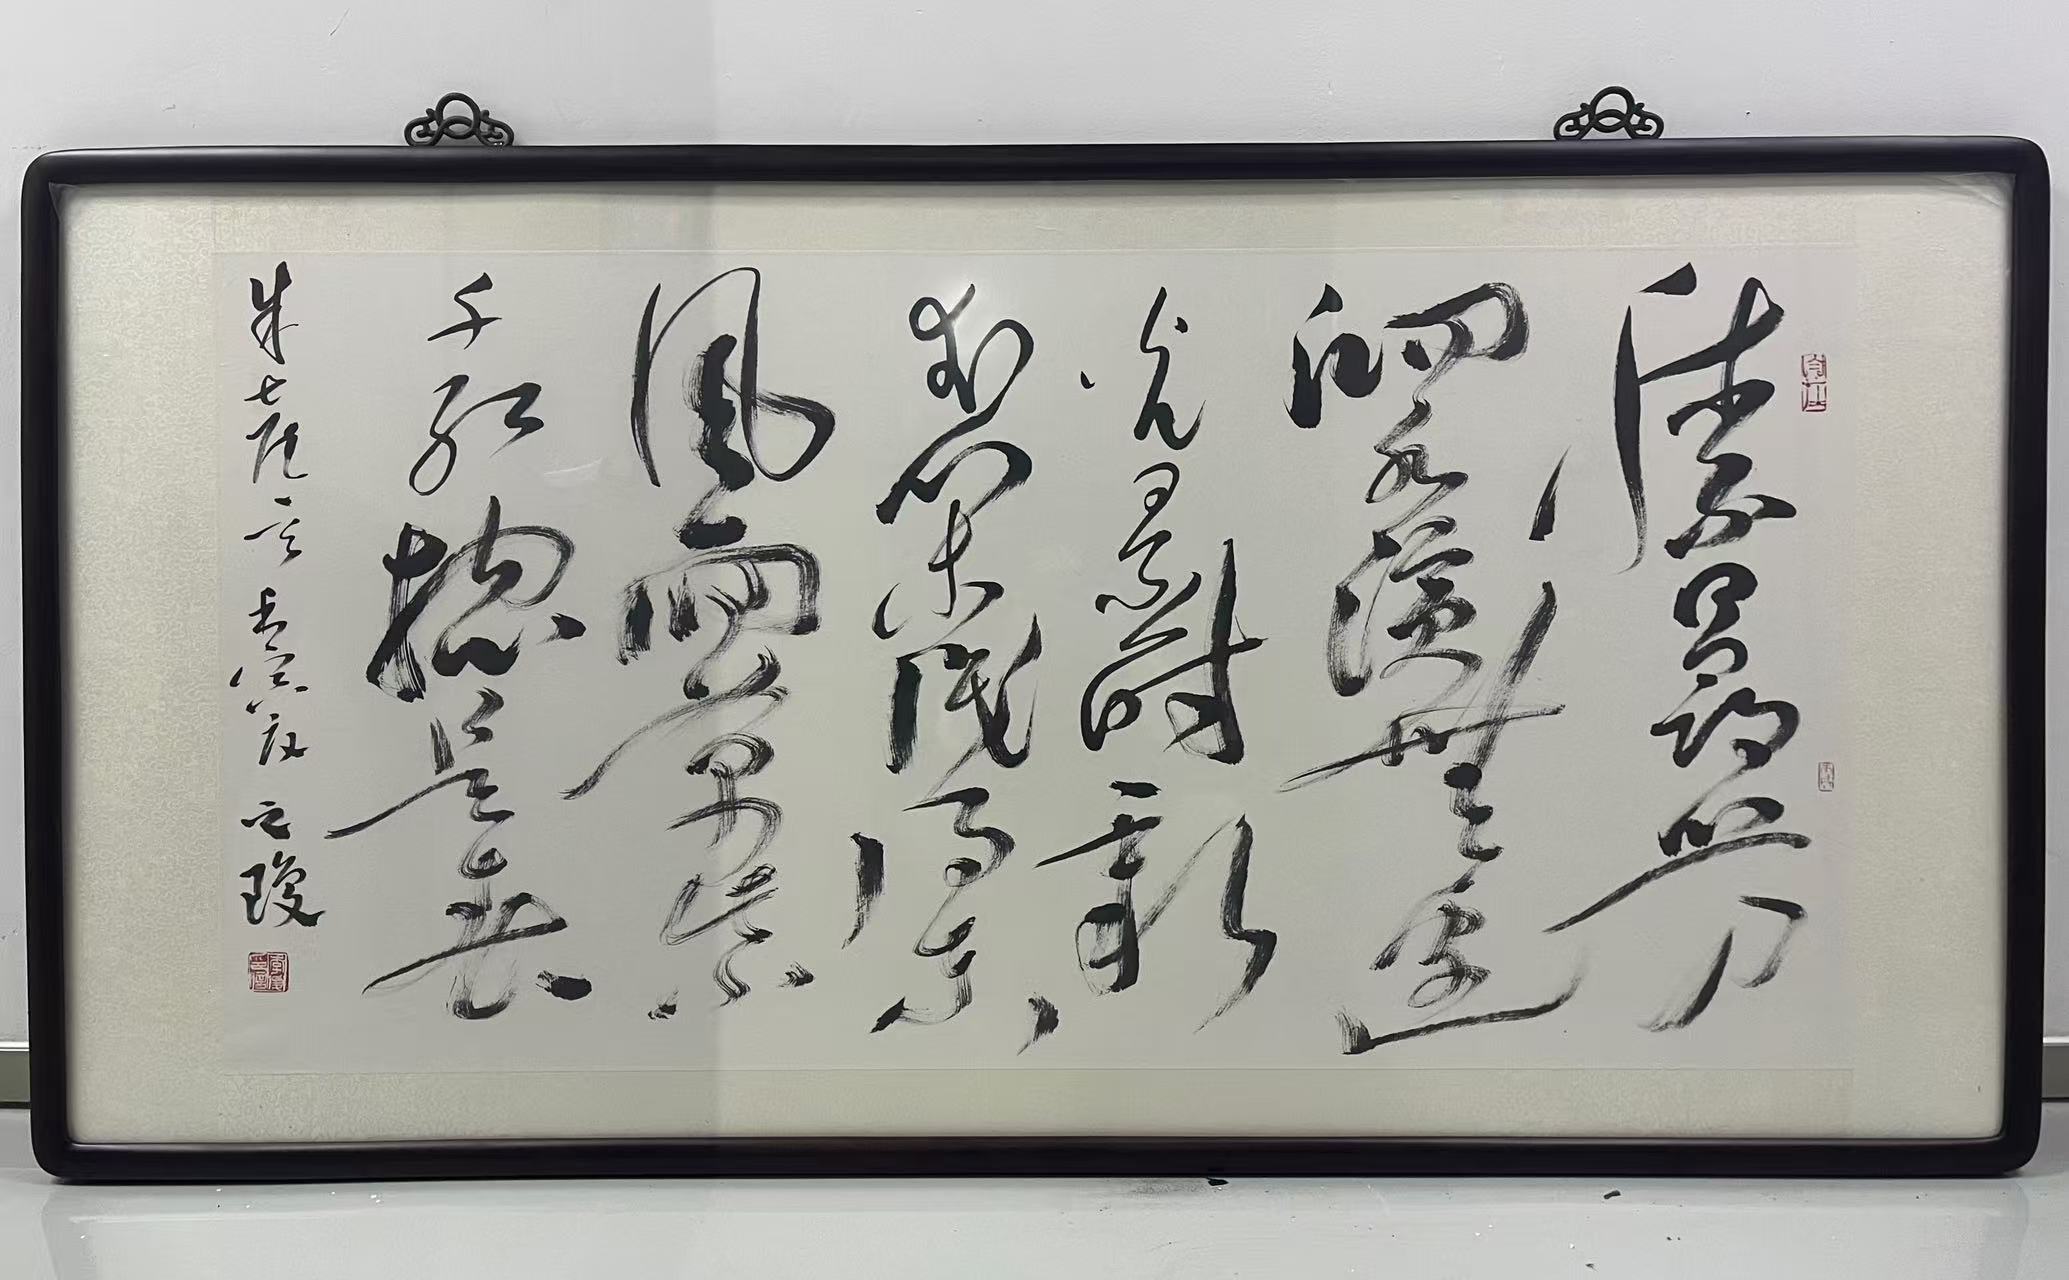 勝日尋芳
泗水濱無邊
光景一時新
等閒識得東
風面萬紫
千紅總是春
朱七言 之瓊